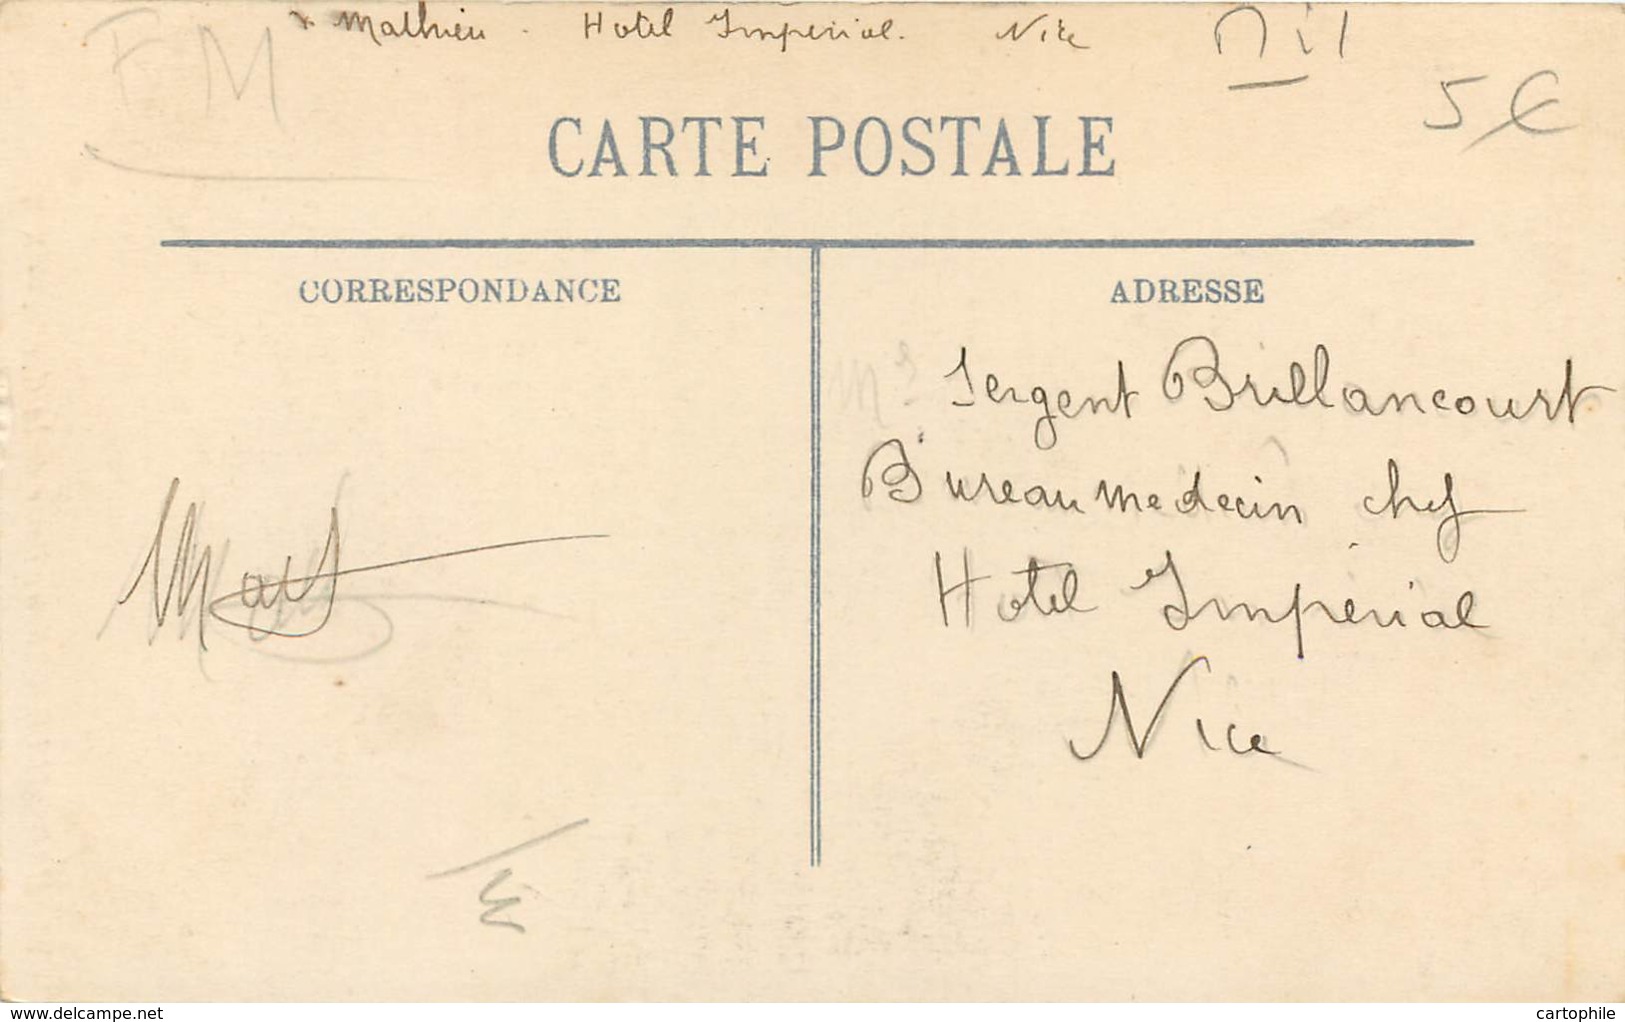 x Mathieu - Hotel Imperial. Nice
Mil
FM
5 €
CARTE POSTALE
CORRESPONDANCE
ADRESSE
Mr Sergent Brillancourt
Bureau medecin chef
Hotel Imperial
Nice
delcampe.net
cartophile